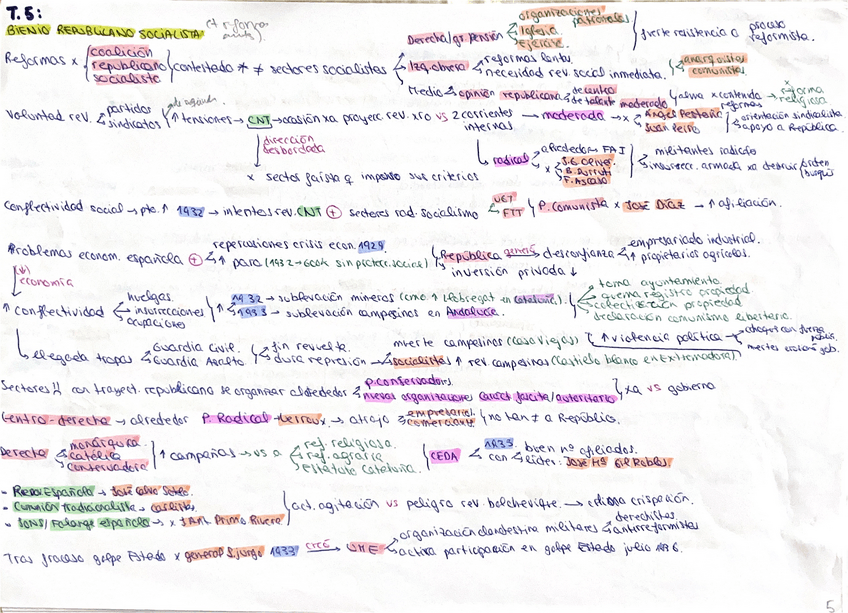 T.5:
BIENIO REPUBLICANO SOCIALISTA
Reformas x coalición republicano socialista contestado x ≠ sectores socialistas
Derecha/gr. presión organizaciones patronales Iglesia ejército fuerte resistencia a proceso reformista.
Izq. obrera reformas lentas necesidad rev. social inmediata. anarquistas comunistas
Media opinión republicana de centro de talante moderado contenido reformas x reforma religiosa
Voluntad rev. partidos sindicatos ↑ tensiones → CNT → ocasión xa proyec. rev. xro vs 2 corrientes internas
moderada → x Ángel Pestaña Juan Peiró orientación sindicalista. apoyo a República.
dirección desbordada
radical alrededor FAI x J.G. Oliver B. Durruti F. Ascaso militantes radicio insurrecc. armada xa destruir orden burgués
x sector faísta q impuso sus criterios
Conflictividad social → pto. ↑ 1932 → intentos rev. CNT + sectores rad. socialismo UGT FTT P. Comunista x José Díaz → ↑ afiliación.
Problemas econom. española + repercusiones crisis econ. 1929 ↑ paro (1932 → 600k sin protecc. social)
República generó desconfianza empresariado industrial. ↑ propietarios agrícolas.
inversión privada ↓
economía
↑ conflictividad huelgas. insurrecciones ocupaciones
↑ 1932 → sublevación mineros (como ↑ Llobregat en Cataluña).
1933 → sublevación campesinos en Andalucía.
toma ayuntamiento. quema registro propiedad. colectivización propiedad declaración comunismo libertario.
llegada tropas Guardia Civil. Guardia Asalto fin revuelta. dura represión
muerte campesinos (Casas Viejas)
socialistas ↑ rev. campesinas (Castilblanco en Extremadura).
↑ violencia política choques con fuerza públic. muertes
Sectores // con trayect. republicana se organizar alrededor p. conservadores. nuevas organizaciones caráct. fascista/autoritario xa vs gobierno
Centro-derecha → alrededor P. Radical Lerroux. → atrajo empresarios. comerciantes no tan ≠ a República.
Derecha monárquica. católica conservadora ↑ campañas → vs a ref. religiosa. ref. agraria estatuto Cataluña.
CEDA 1933. buen nº afiliados. con líder: José Mª Gil Robles
- Renov. Española → José Calvo Sotelo.
- Comunión Tradicionalista → carlistas
- JONS/Falange española → x J. Ant. Primo Rivera
act. agitación vs peligro rev. bolchevique. → crispación.
Tras fracaso golpe Estado x general Sanjurjo 1932 creó UME organización clandestina militares derechistas antirreformistas
activa participación en golpe Estado julio 1936.
5